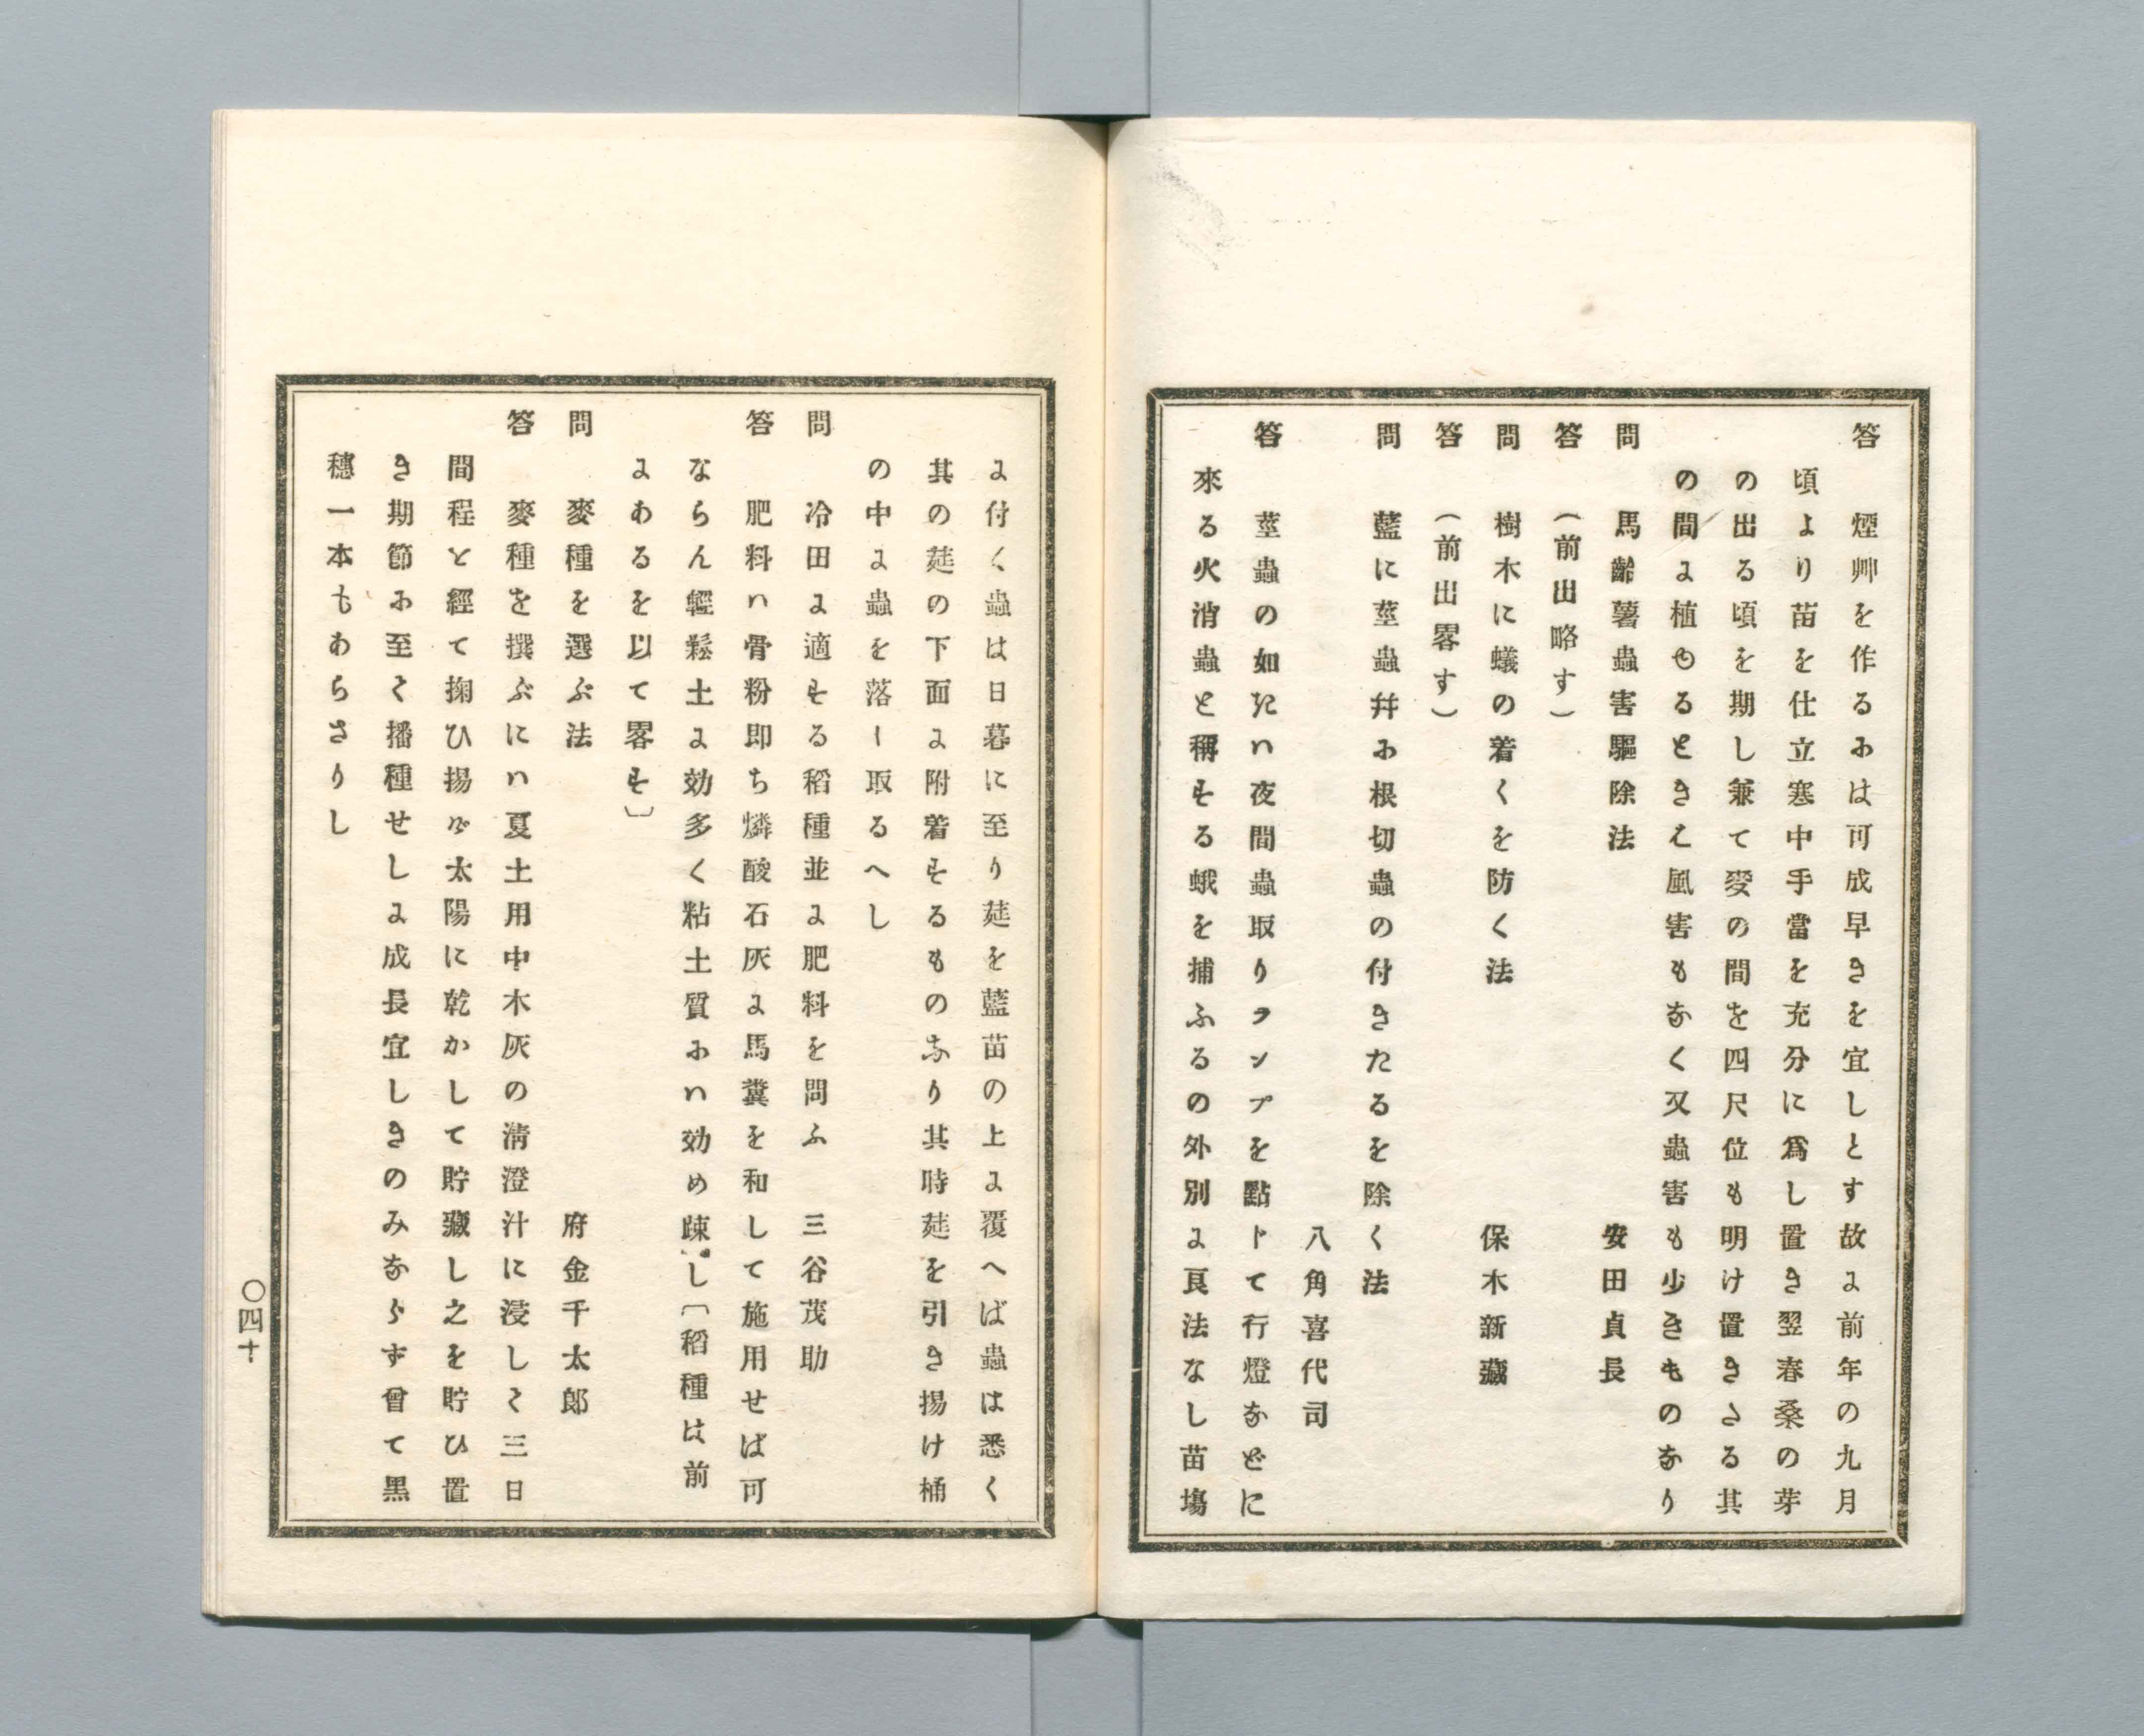 答　煙艸を作るには可成早きを宜しとす故に前年の九月
頃より苗を仕立寒中手當を充分に爲し置き翌春桑の芽
の出る頃を期し兼て變の間を四尺位も明け置きたる其
の間に植もるときは風害もなく又蟲害も少きものなり
問　馬齡薯蟲害驅除法　安田貞長
答　（前出略す）
問　樹木に蟻の着くを防く法　保木新藏
答　（前出畧す）
問　藍に莖蟲幷に根切蟲の付きたるを除く法
八角喜代司
答　莖蟲の如きハ夜間蟲取りランプを點トて行燈などに
來る火消蟲と稱する蛾を捕ふるの外別に良法なし苗塲
に付く蟲は日暮に至り莚を藍苗の上に覆へば蟲は悉く
其の莚の下面に附着するものなり其時莚を引き揚け桶
の中に蟲を落ー取るへし
問　冷田に適する稻種並に肥料を問ふ　三谷茂助
答　肥料ハ骨粉即ち燐酸石灰に馬糞を和して施用せば可
ならん輕鬆土に効多く粘土質にハ効め疎し〔稻種は前
にあるを以て畧す〕
問　麥種を選ぶ法　府金千太郎
答　麥種を撰ぶにハ夏土用中木灰の淸澄汁に浸して三日
間程と經て掬ひ揚げ太陽に乾かして貯藏し之を貯ひ置
き期節に至て播種せしに成長宜しきのみならず曾て黑
穗一本もあらさりし
〇四十